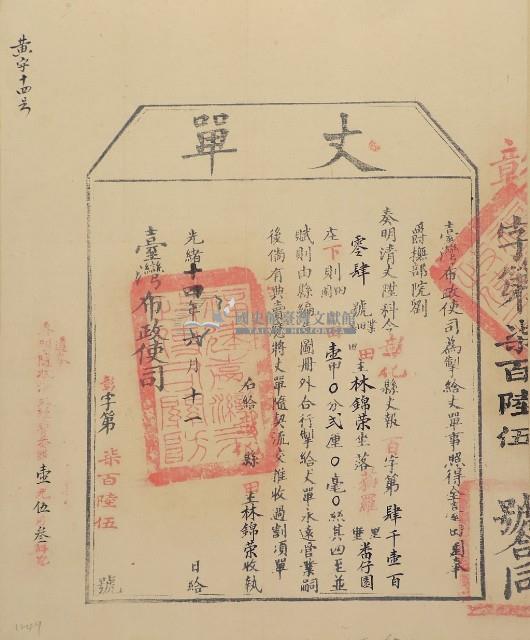 黃字十四号
丈單
臺灣布政使司為掣給丈單事照得全臺田園奉
爵撫部院劉
奏明清丈陞科今彰化縣丈報百字第肆千壹百
零肆號
田主林錦榮坐落
里
番仔園
庄下則田
壹甲〇分弍厘〇毫〇絲其四至並
賦則由縣編
圖冊外合行掣給丈單永遠管業嗣
後倘有典賣
將丈單隨契流交推收過割須單
右給
縣
主林錦榮收執
光緒十四年
月十一
日給
臺灣布政使司
彰字第柒百陸伍號
彰
字第柒百陸伍號合同
國史館臺灣文獻館
TAIWAN HISTORICA